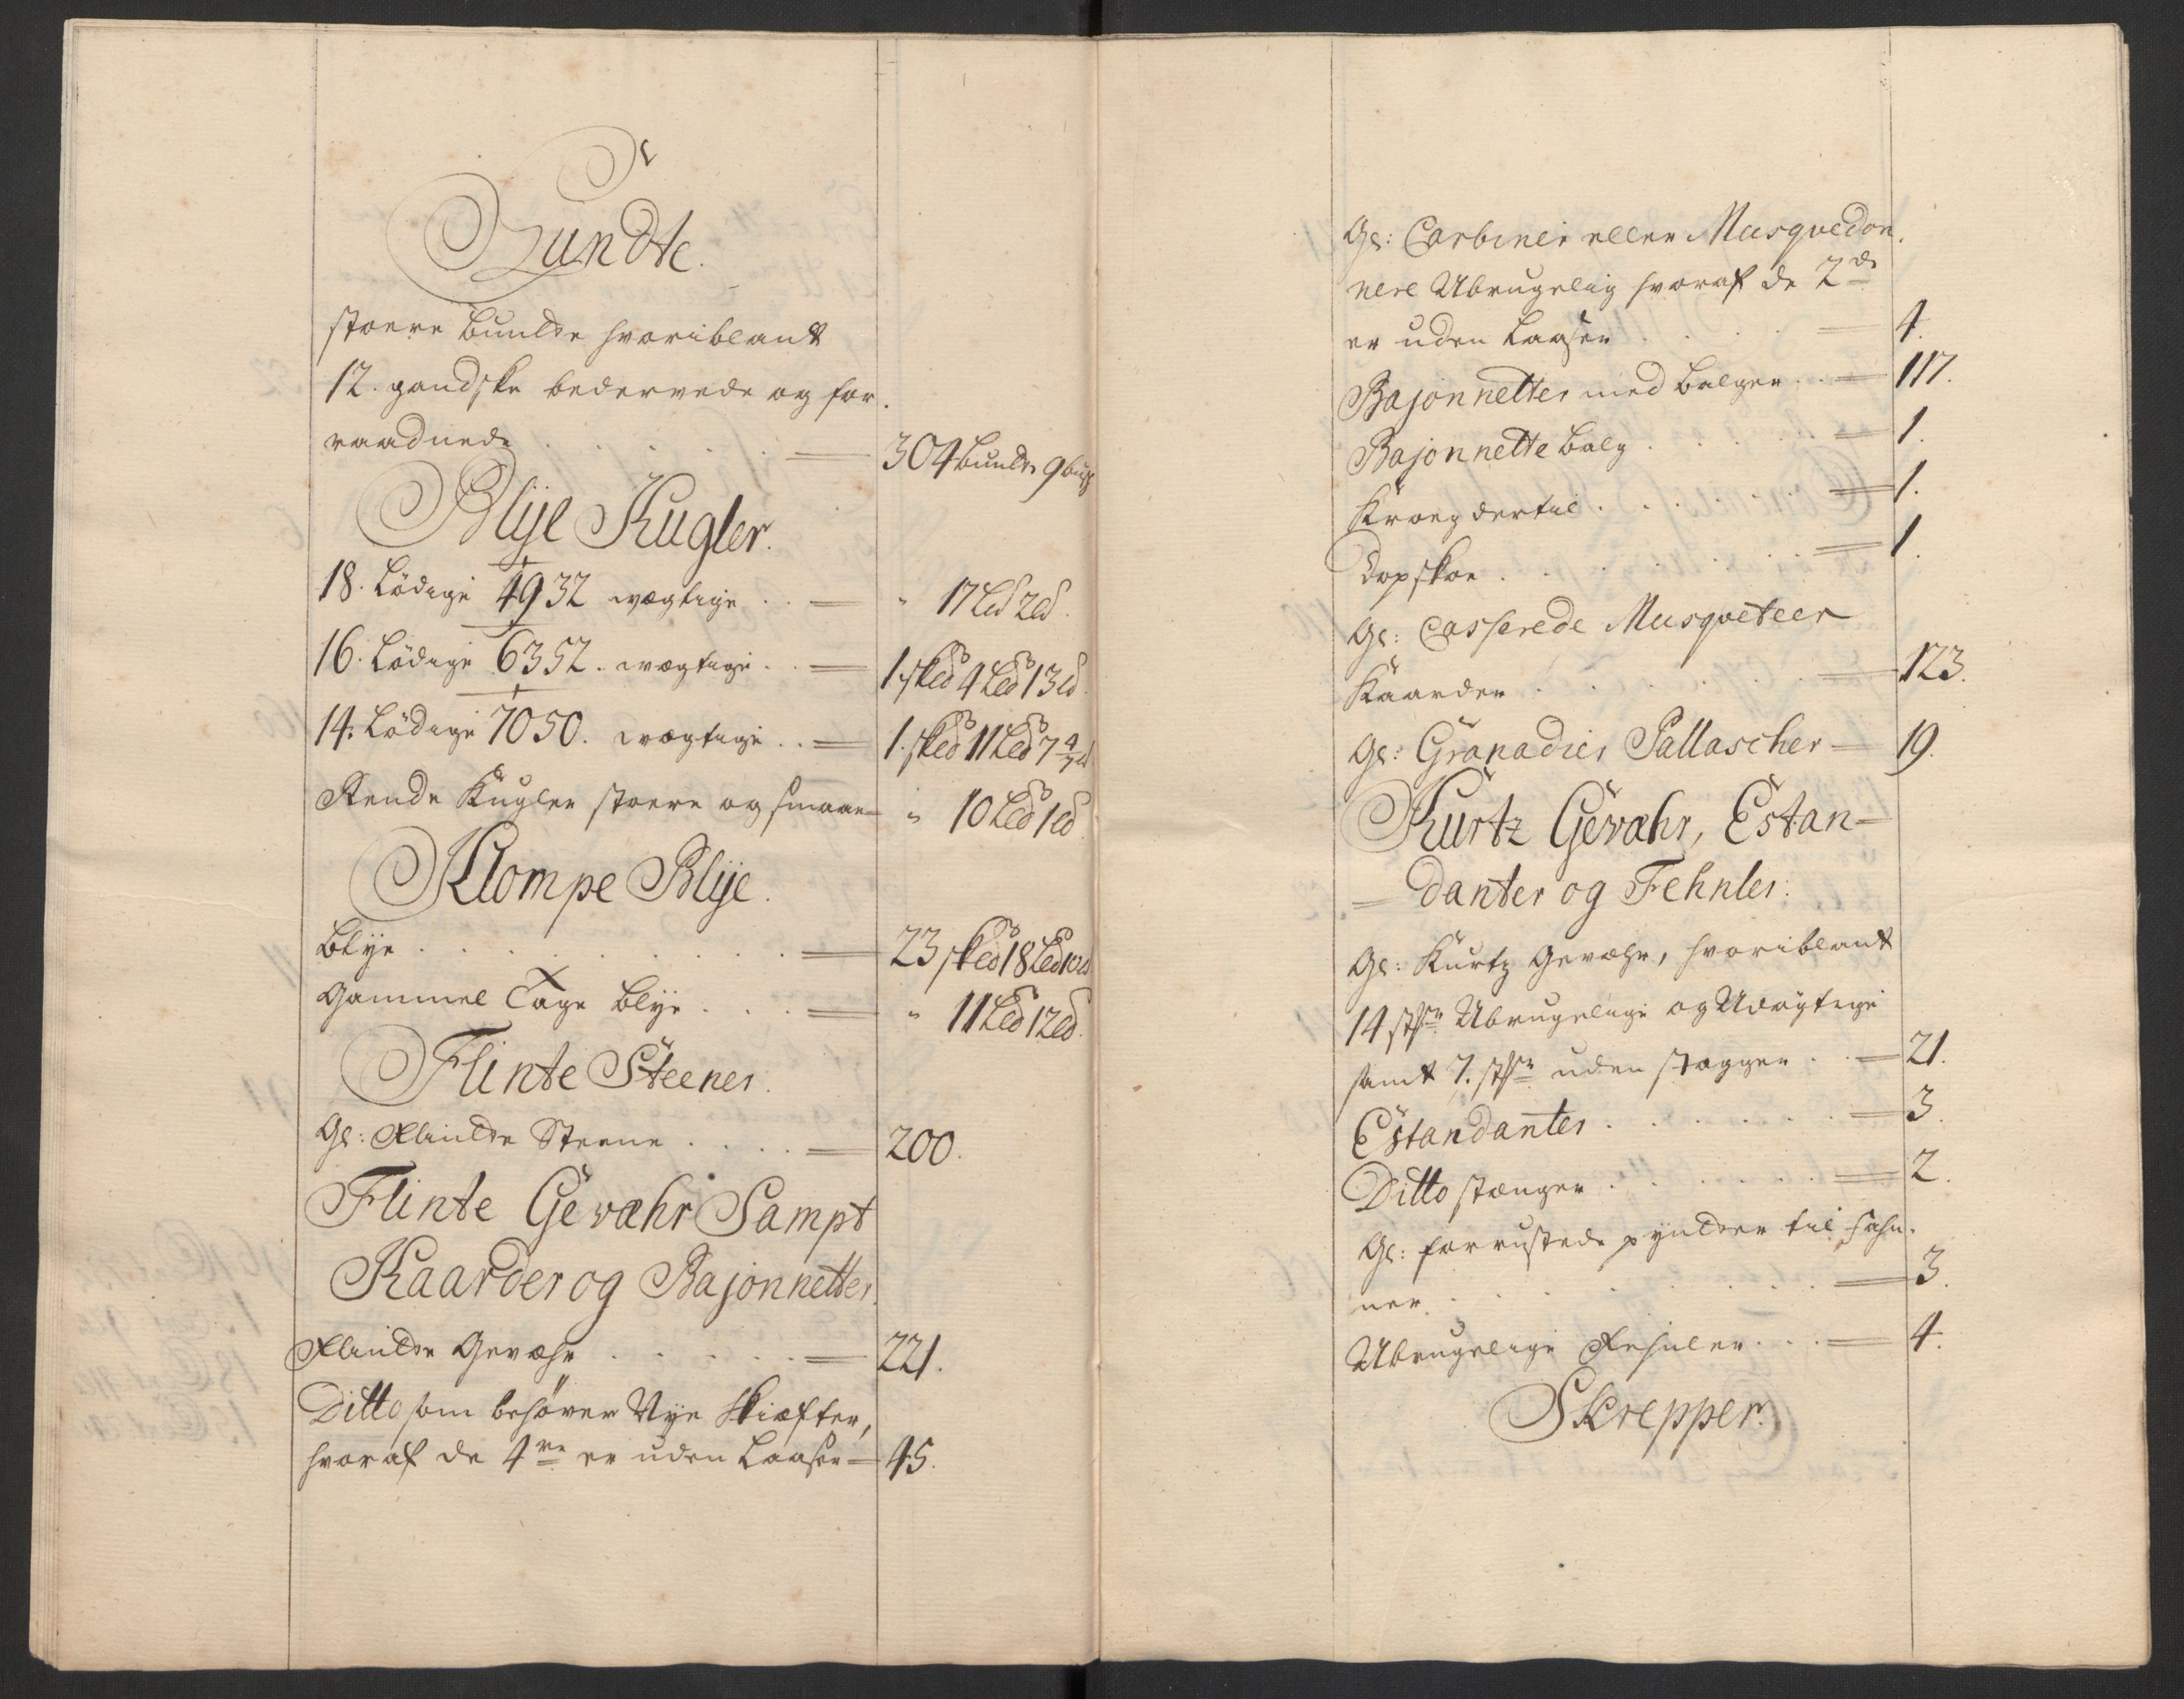 Lundte.
stoere bundte hvoriblant
12. gandske bedervede og for
raadnede . . . . = 304 bundte 9 bug
Blye Kugler.
18. Lödige 4932 wægtige . . = " 17 L℔ 2 ℔.
16. Lödige 6352. wægtige . . = 1. sk℔ 4 L℔ 13 ℔.
14. Lödige 7050. wægtige . . = 1. sk℔ 11 L℔ 7 4/7 ℔
Rende Kugler stoere og smaae = " 10 L℔ 1 ℔
Klompe Blye.
Blye . . . . . . = 23 sk℔ 18 L℔ 10 ℔
Gammel Tage Blye . . . = " 11 L℔ 12 ℔.
Flinte Steener.
Gl: Flindte Steene . . . . = 200.
Flinte Gewæhr Sampt
Kaarder og Bajonnetter.
Flindte Gewæhr . . . . . = 221.
Ditto som behøver Nye Skiæfter,
hvoraf de 4re er uden Laaser = 45.
Gl: Carbiner eller Musquedon
nere Ubrugelig hvoraf de 2de
er uden Laaser . . . = 4.
Bajonnetter med balger . . = 117.
Bajonnette balg . . . . = 1.
Kroeg dertil . . . . . = 1.
Dopskoe . . . . . . = 1.
Gl: Casserede Musqueteer
Kaarder . . . . . = 123.
Gl: Granadier Pallascher = 19.
Kurtz Gewæhr, Estan-
= danter og Fehnler.
Gl: Kurtz Gewæhr, hvoriblant
14 stkr Ubrugelige og Udøgtige
samt 7. stkr uden stagger . . = 21.
Estandanter . . . . . . = 3.
Ditto stænger . . . . . . = 2.
Gl: forrustede pyndter til fahn-
ner . . . . . . . = 3.
Ubrugelige Fehnler . . . = 4.
Skrepper.